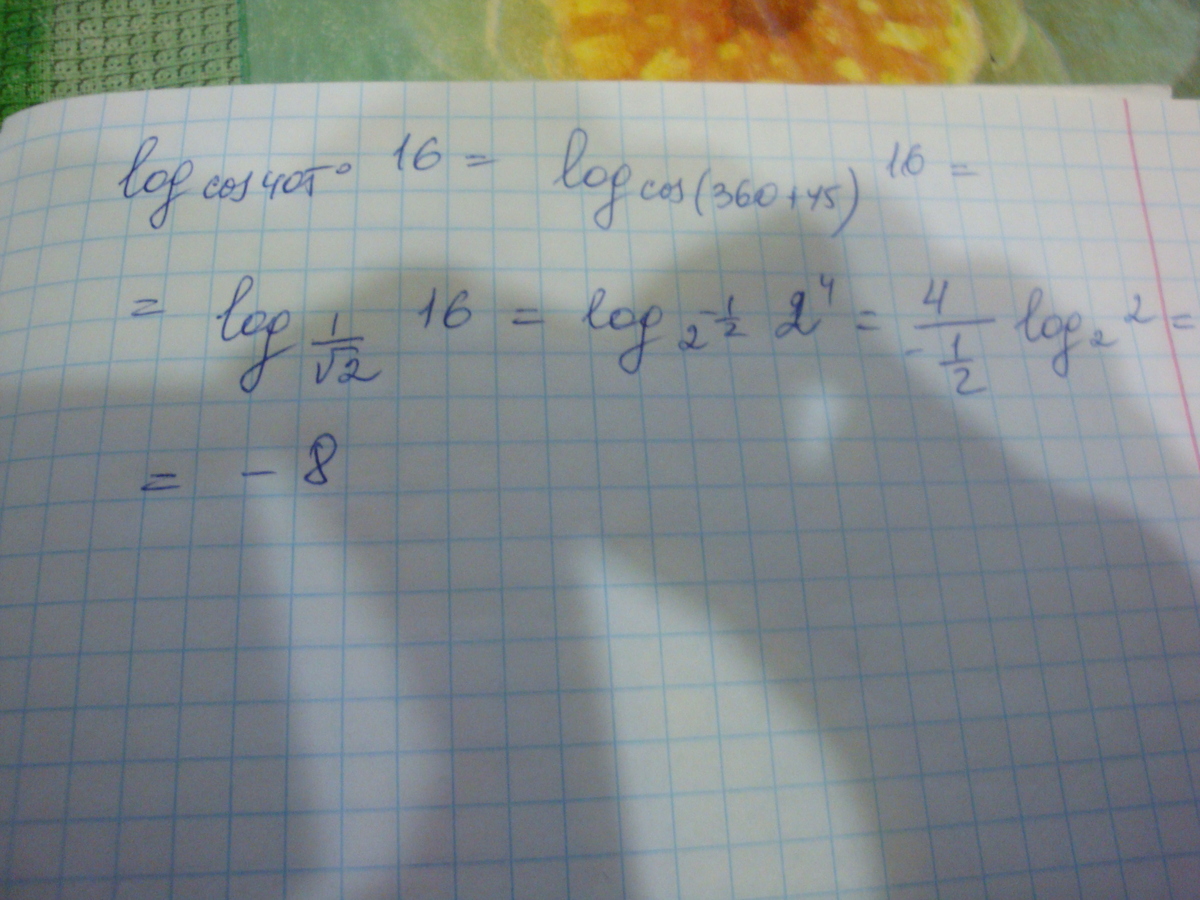 log cos 405° 16 = log cos(360+45) 16 =
= log 1/√2 16 = log 2^-1/2 2^4 = 4/-1/2 log₂ 2 =
= - 8